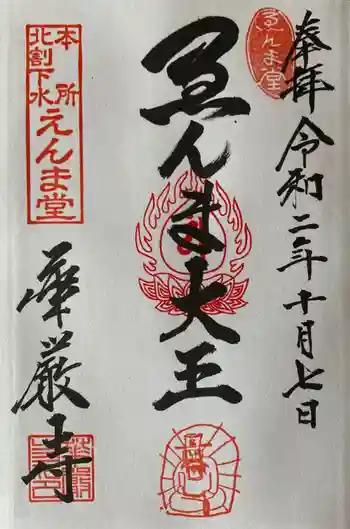 奉拝
令和二年十月七日
ゑんま堂
ゑんま大王
本所
北割下水
えんま堂
華厳寺